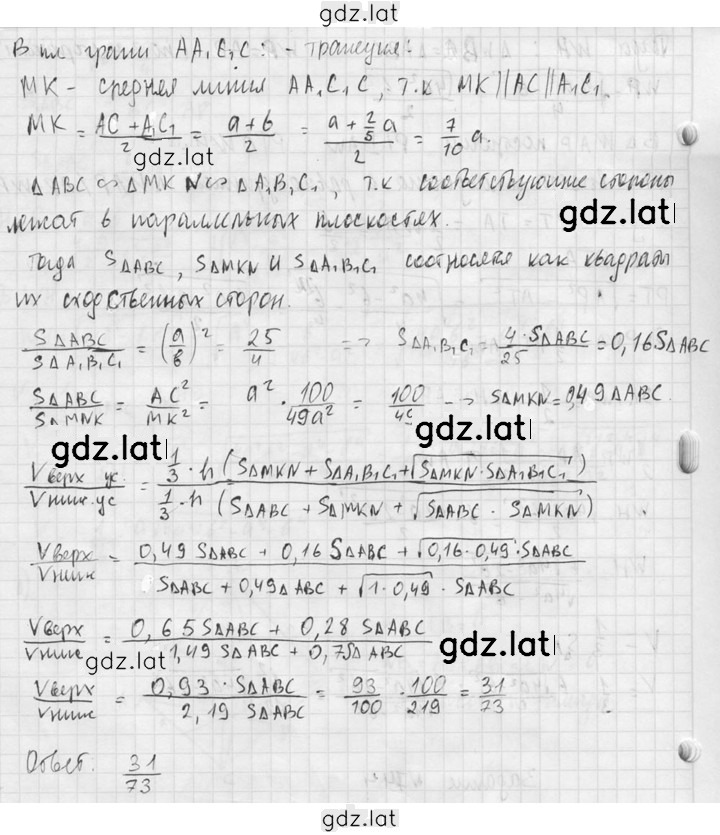 gdz.latl
В пл. грани AA₁C₁C: - трапеция:
MK - средняя линия AA₁C₁C, т.к MK||AC||A₁C₁
MK = (AC + A₁C₁)/2 = (a+b)/2 = (a + 2/5 a)/2 = 7/10 a.
gdz.latl
Δ ABC ∽ Δ MKN ∽ Δ A₁B₁C₁, т.к соответствующие стороны
gdz.latl
лежат в параллельных плоскостях.
Тогда SΔABC, SΔMKN и SΔA₁B₁C₁ соотносятся как квадраты
их сходственных сторон.
SΔABC/SΔA₁B₁C₁ = (a/b)² = 25/4 => SΔA₁B₁C₁ = 4·SΔABC/25 = 0,16SΔABC
SΔABC/SΔMNK = AC²/MK² = a² · 100/49a² = 100/49 -> SΔMKN = 0,49ΔABC.
gdz.latl
gdz.latl
Vверх ус./Vниж.ус = 1/3·h (SΔMKN + SΔA₁B₁C₁ + √SΔMKN·SΔA₁B₁C₁)/1/3·h (SΔABC + SΔMKN + √SΔABC · SΔMKN)
Vверх/Vниж = 0,49 SΔABC + 0,16 SΔABC + √0,16·0,49·SΔABC/SΔABC + 0,49ΔABC + √1·0,49 · SΔABC
Vверх/Vниж = 0,65SΔABC + 0,28 SΔABC/1,49 SΔABC + 0,7SΔABC
gdz.latl
gdz.latl
Vверх/Vниж = 0,93·SΔABC/2,19 SΔABC = 93/100 · 100/219 = 31/73
Ответ: 31/73
gdz.latl